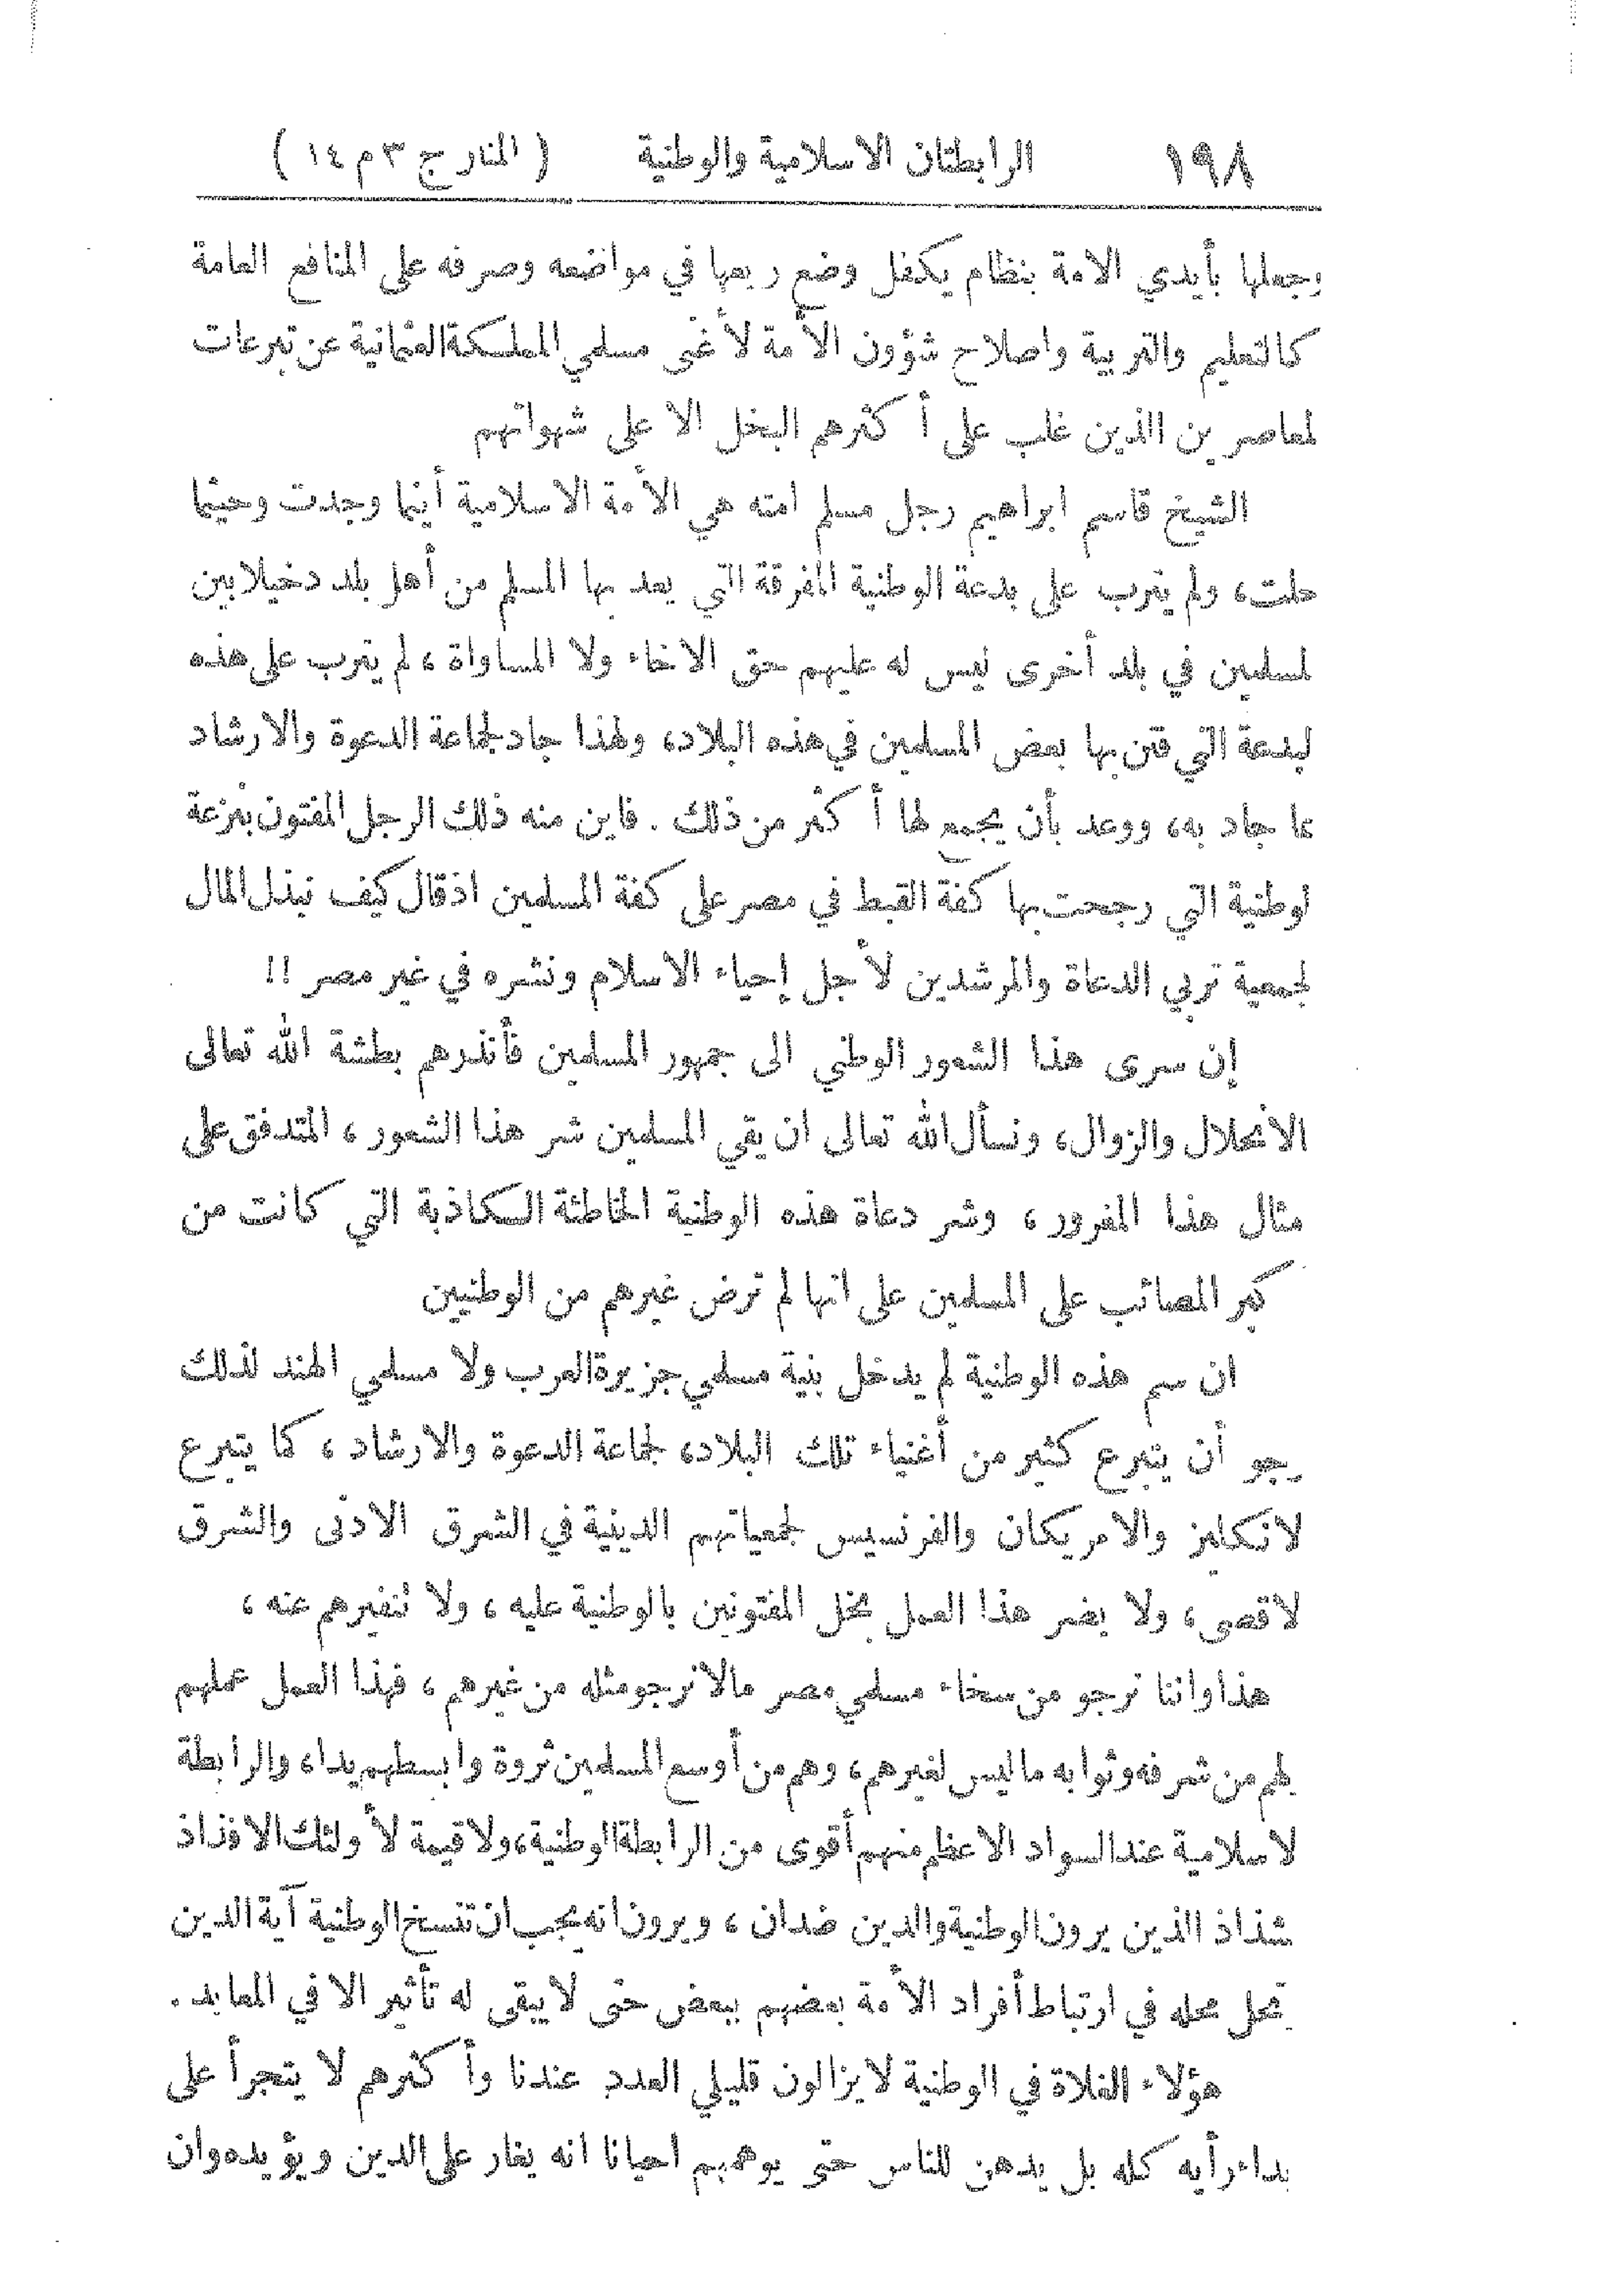 ١٩٨ الرابطتان الاسلامية والوطنية ( المنار ج ٣ م ١٤ )
وجعلها بأيدي الامة بنظام يكفل وضع ريعها في مواضعه وصرفه على المنافع العامة
كالتعليم والتربية واصلاح شؤون الأمة لأغنى مسلمي المملكة العثمانية عن تبرعات
لمعاصرين الذين غلب على أكثرهم البخل الا على شهواتهم
الشيخ قاسم ابراهيم رجل مسلم امته هي الأمة الاسلامية أينما وجدت وحيثما
حلت، ولم يترب على بدعة الوطنية المفرقة التي يعد بها المسلم من أهل بلد دخيلا بين
لمسلمين في بلد أخرى ليس له عليهم حق الاخاء ولا المساواة، لم يترب على هذه
لبدعة التي فتن بها بعض المسلمين في هذه البلاد، ولهذا جاد لجماعة الدعوة والارشاد
بما جاد به، ووعد بأن يجمع لها أكثر من ذلك . فاين منه ذلك الرجل المفتون بنزعة
لوطنية التي رجحت بها كفة القبط في مصر على كفة المسلمين اذ قال كيف نبذل المال
لجمعية تربي الدعاة والمرشدين لأجل إحياء الاسلام ونشره في غير مصر !!
إن سرى هذا الشعور الوطني الى جمهور المسلمين فأنذرهم بطشة الله تعالى
الانحلال والزوال، ونسأل الله تعالى ان يقي المسلمين شر هذا الشعور، المتدفق على
مثال هذا المغرور، وشر دعاة هذه الوطنية الخاطئة الكاذبة التي كانت من
كبر المصائب على المسلمين على انها لم ترض غيرهم من الوطنيين
ان سم هذه الوطنية لم يدخل بنية مسلمي جزيرة العرب ولا مسلمي الهند لذلك
رجو أن يتبرع كثير من أغنياء تلك البلاد، لجماعة الدعوة والارشاد، كما يتبرع
لانكليز والامريكان والفرنسيس لجمعياتهم الدينية في الشرق الادنى والشرق
لاقصى، ولا يضر هذا العمل بخل المفتونين بالوطنية عليه، ولا تنفيرهم عنه،
هذا واننا نرجو من سخاء مسلمي مصر مالا نرجو مثله من غيرهم، فهذا العمل عملهم
لهم من شرفه وثوابه ما ليس لغيرهم، وهم من أوسع المسلمين ثروة وابسطهم يدا، والرابطة
لاسلامية عند السواد الاعظم منهم أقوى من الرابطة الوطنية، ولا قيمة لأولئك الافذاذ
شذاذ الذين يرون الوطنية والدين ضدان، ويرون انه يجب ان تنسخ الوطنية آية الدين
تحل محله في ارتباط أفراد الأمة بعضهم ببعض حتى لا يبقى له تأثير الا في المعابد .
هؤلاء الغلاة في الوطنية لا يزالون قليلي العدد عندنا وأكثرهم لا يتجرأ على
بداء رأيه كله بل يدهن للناس حتى يوهمهم احيانا انه يغار على الدين ويؤيده وان